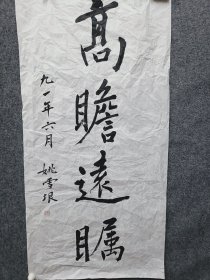 高瞻遠瞩
九一年六月
姚雪垠